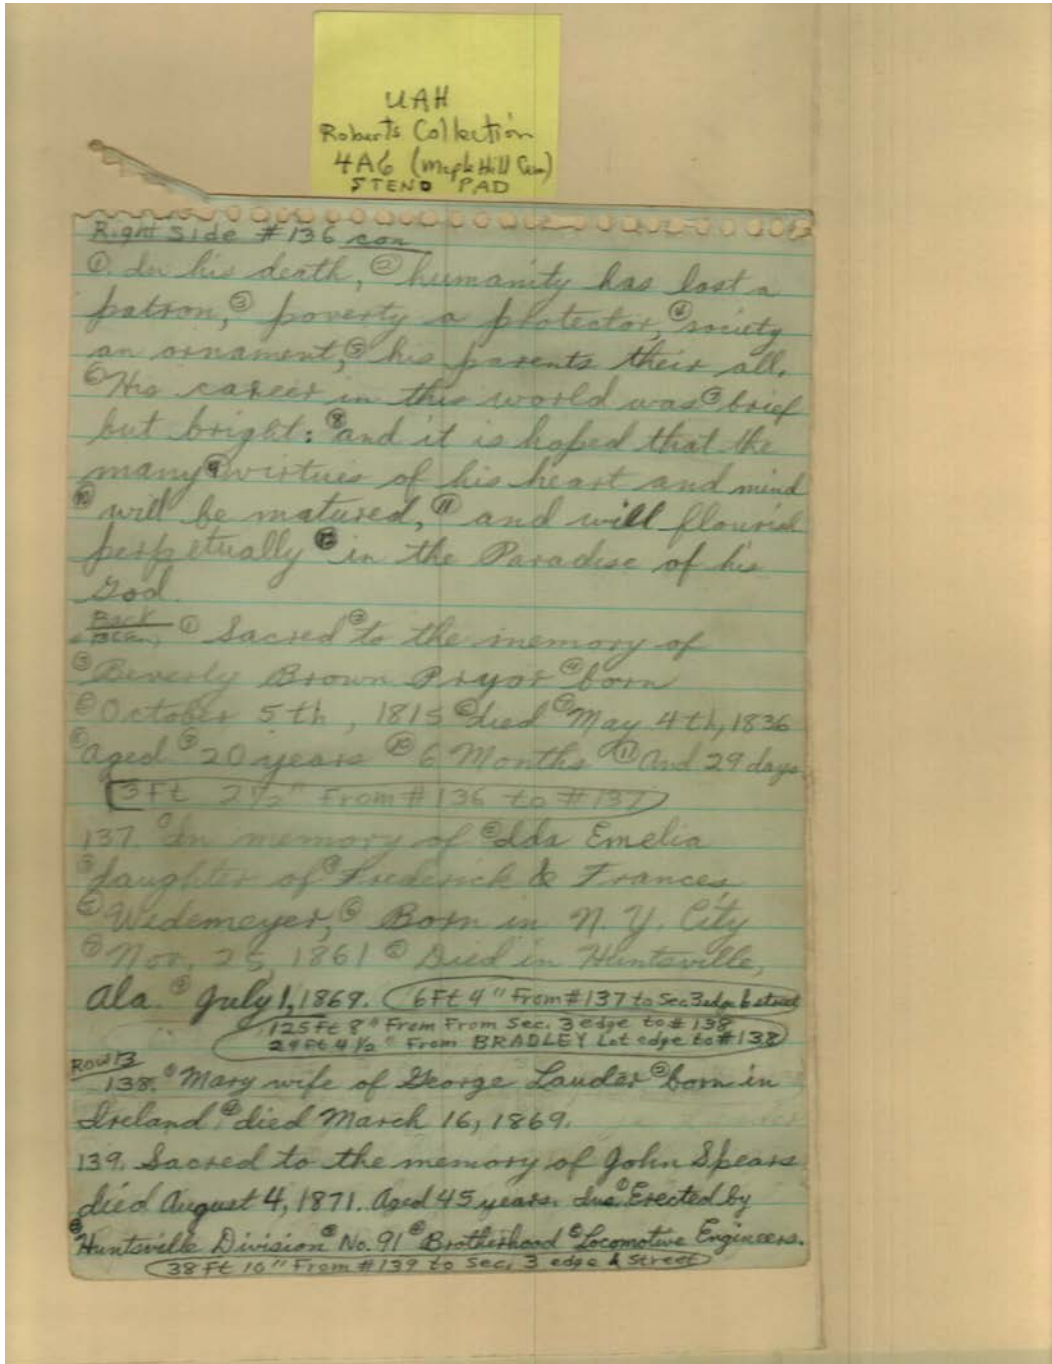 UAH
Roberts Collection
4A6 (Maple Hill Cem)
STENO PAD
Right Side #136 con
① In his death, ② humanity has lost a
patron, ③ poverty a protector, ④ society
an ornament, ⑤ his parents their all.
⑥ His career in this world was ⑦ brief
but bright: ⑧ and it is hoped that the
many ⑨ virtues of his heart and mind
⑩ will be matured, ⑪ and will flourish
perpetually ⑫ in the Paradise of his
God.
Back
① Sacred ② to the memory of
③ Beverly Brown Pryor ④ born
⑤ October 5th, 1815 ⑥ died ⑦ May 4th, 1836
⑧ Aged ⑨ 20 years ⑩ 6 Months ⑪ And 29 days.
3Ft 2 1/2" From #136 to #137
137. ① In memory of ② Ida Emelia
③ daughter of ④ Frederick & Frances
⑤ Wedemeyer, ⑥ Born in N. Y. City
⑦ Nov, 25, 1861 ⑧ Died in Huntsville,
Ala. ⑨ July 1, 1869. 6Ft 4" From #137 to Sec 3 edge & street
125Ft 8" From From Sec. 3 edge to #138
29Ft 4 1/2" From BRADLEY Lot edge to #138
Row 13
138. ① Mary wife of George Lauder ② born in
Ireland ③ died March 16, 1869.
139. Sacred to the memory of John Spears
died August 4, 1871. Aged 45 years. Ins. ① Erected by
② Huntsville Division ③ No. 91 ④ Brotherhood ⑤ Locomotive Engineers.
38Ft 10" From #139 to Sec. 3 edge & Street